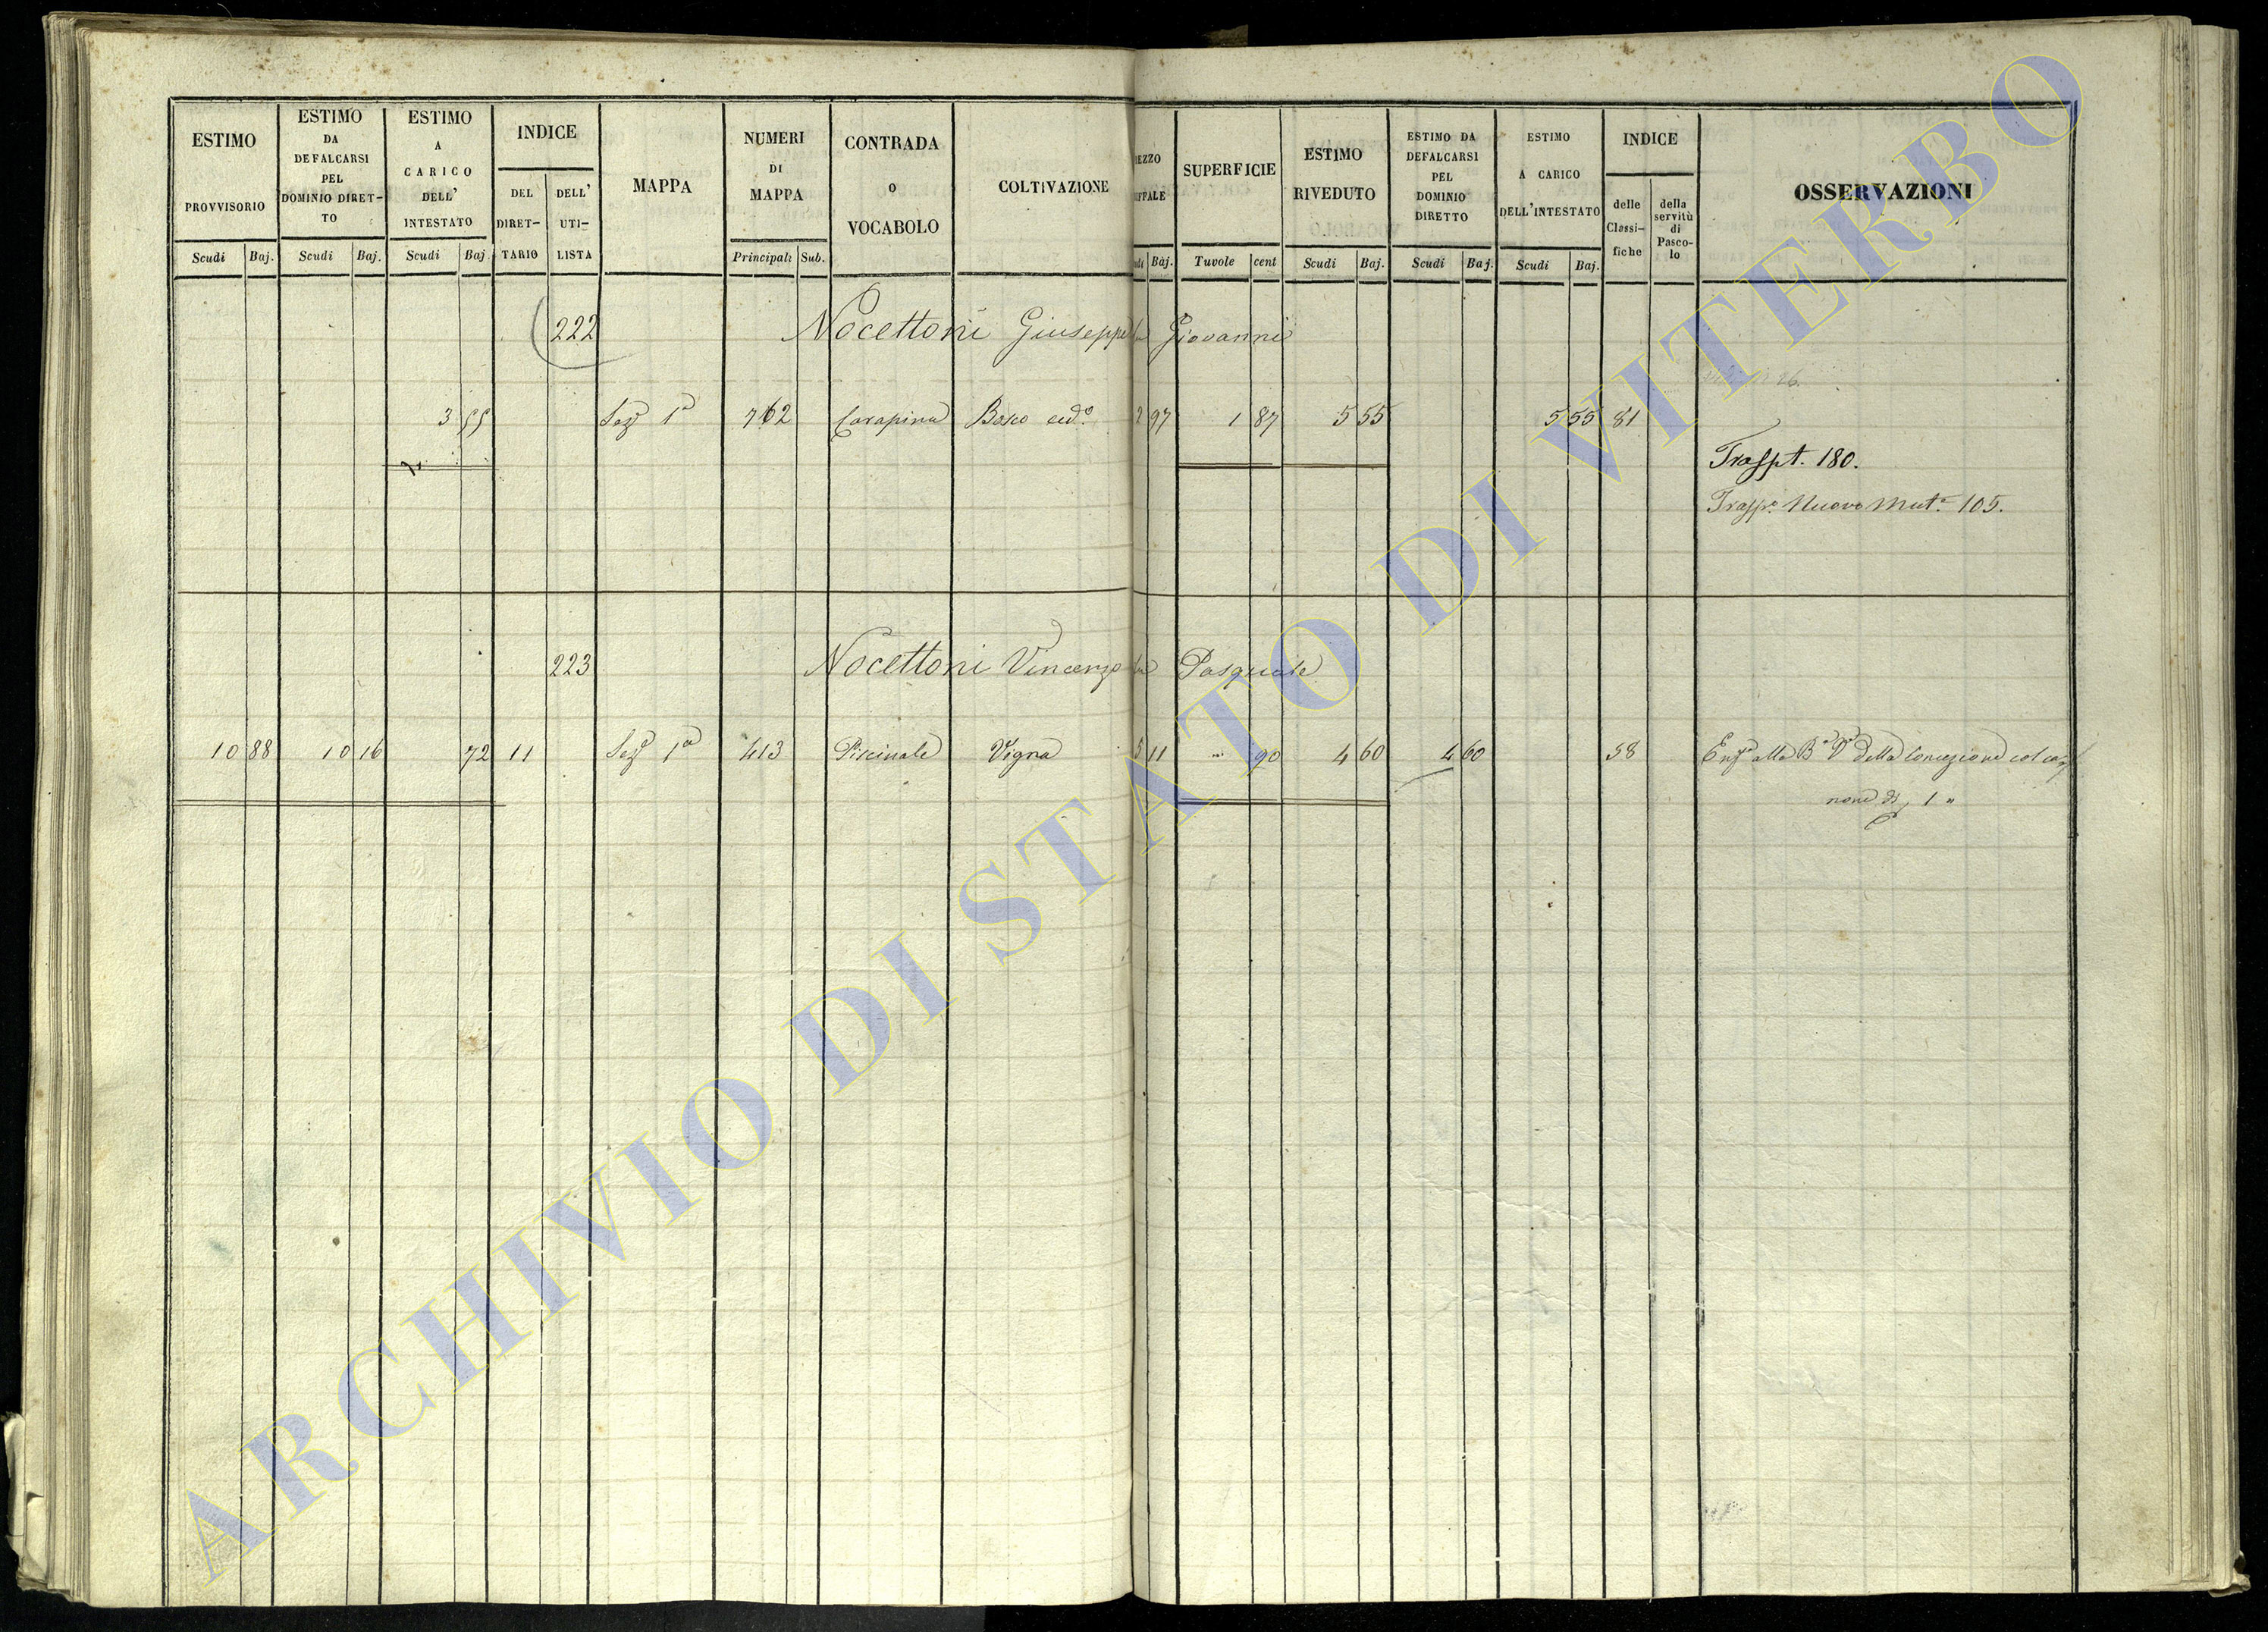 ESTIMO
PROVVISORIO
Scudi Baj.
ESTIMO
DA
DEFALCARSI
PEL
DOMINIO DIRET-
TO
Scudi Baj.
ESTIMO
A
CARICO
DELL'
INTESTATO
Scudi Baj.
INDICE
DEL
DIRET-
TARIO
DELL'
UTI-
LISTA
MAPPA
NUMERI
DI
MAPPA
Principali Sub.
CONTRADA
O
VOCABOLO
COLTIVAZIONE
EZZO
FFALE
di Baj.
SUPERFICIE
Tavole cent
ESTIMO
RIVEDUTO
Scudi Baj.
ESTIMO DA
DEFALCARSI
PEL
DOMINIO
DIRETTO
Scudi Baj.
ESTIMO
A CARICO
DELL'INTESTATO
Scudi Baj.
INDICE
delle
Classi-
fiche
della
servitù
di
Pasco-
lo
OSSERVAZIONI
222 Nocettoni Giuseppe Giovanni
3 55 Sez 1a 762 Carapina Bosco ced.o 2 97 1 87 5 55 5 55 81
Traspt. 180.
Trasp.o Nuovo Mut.e 105.
223 Nocettoni Vincenzo Pasquale
10 88 10 16 72 11 Sez 1a 413 Piscinale Vigna 5 11 90 4 60 4 60 58 alla B.a V.e della Concezione col ca
none di 1 "
ARCHIVIO DI STATO DI VITERBO